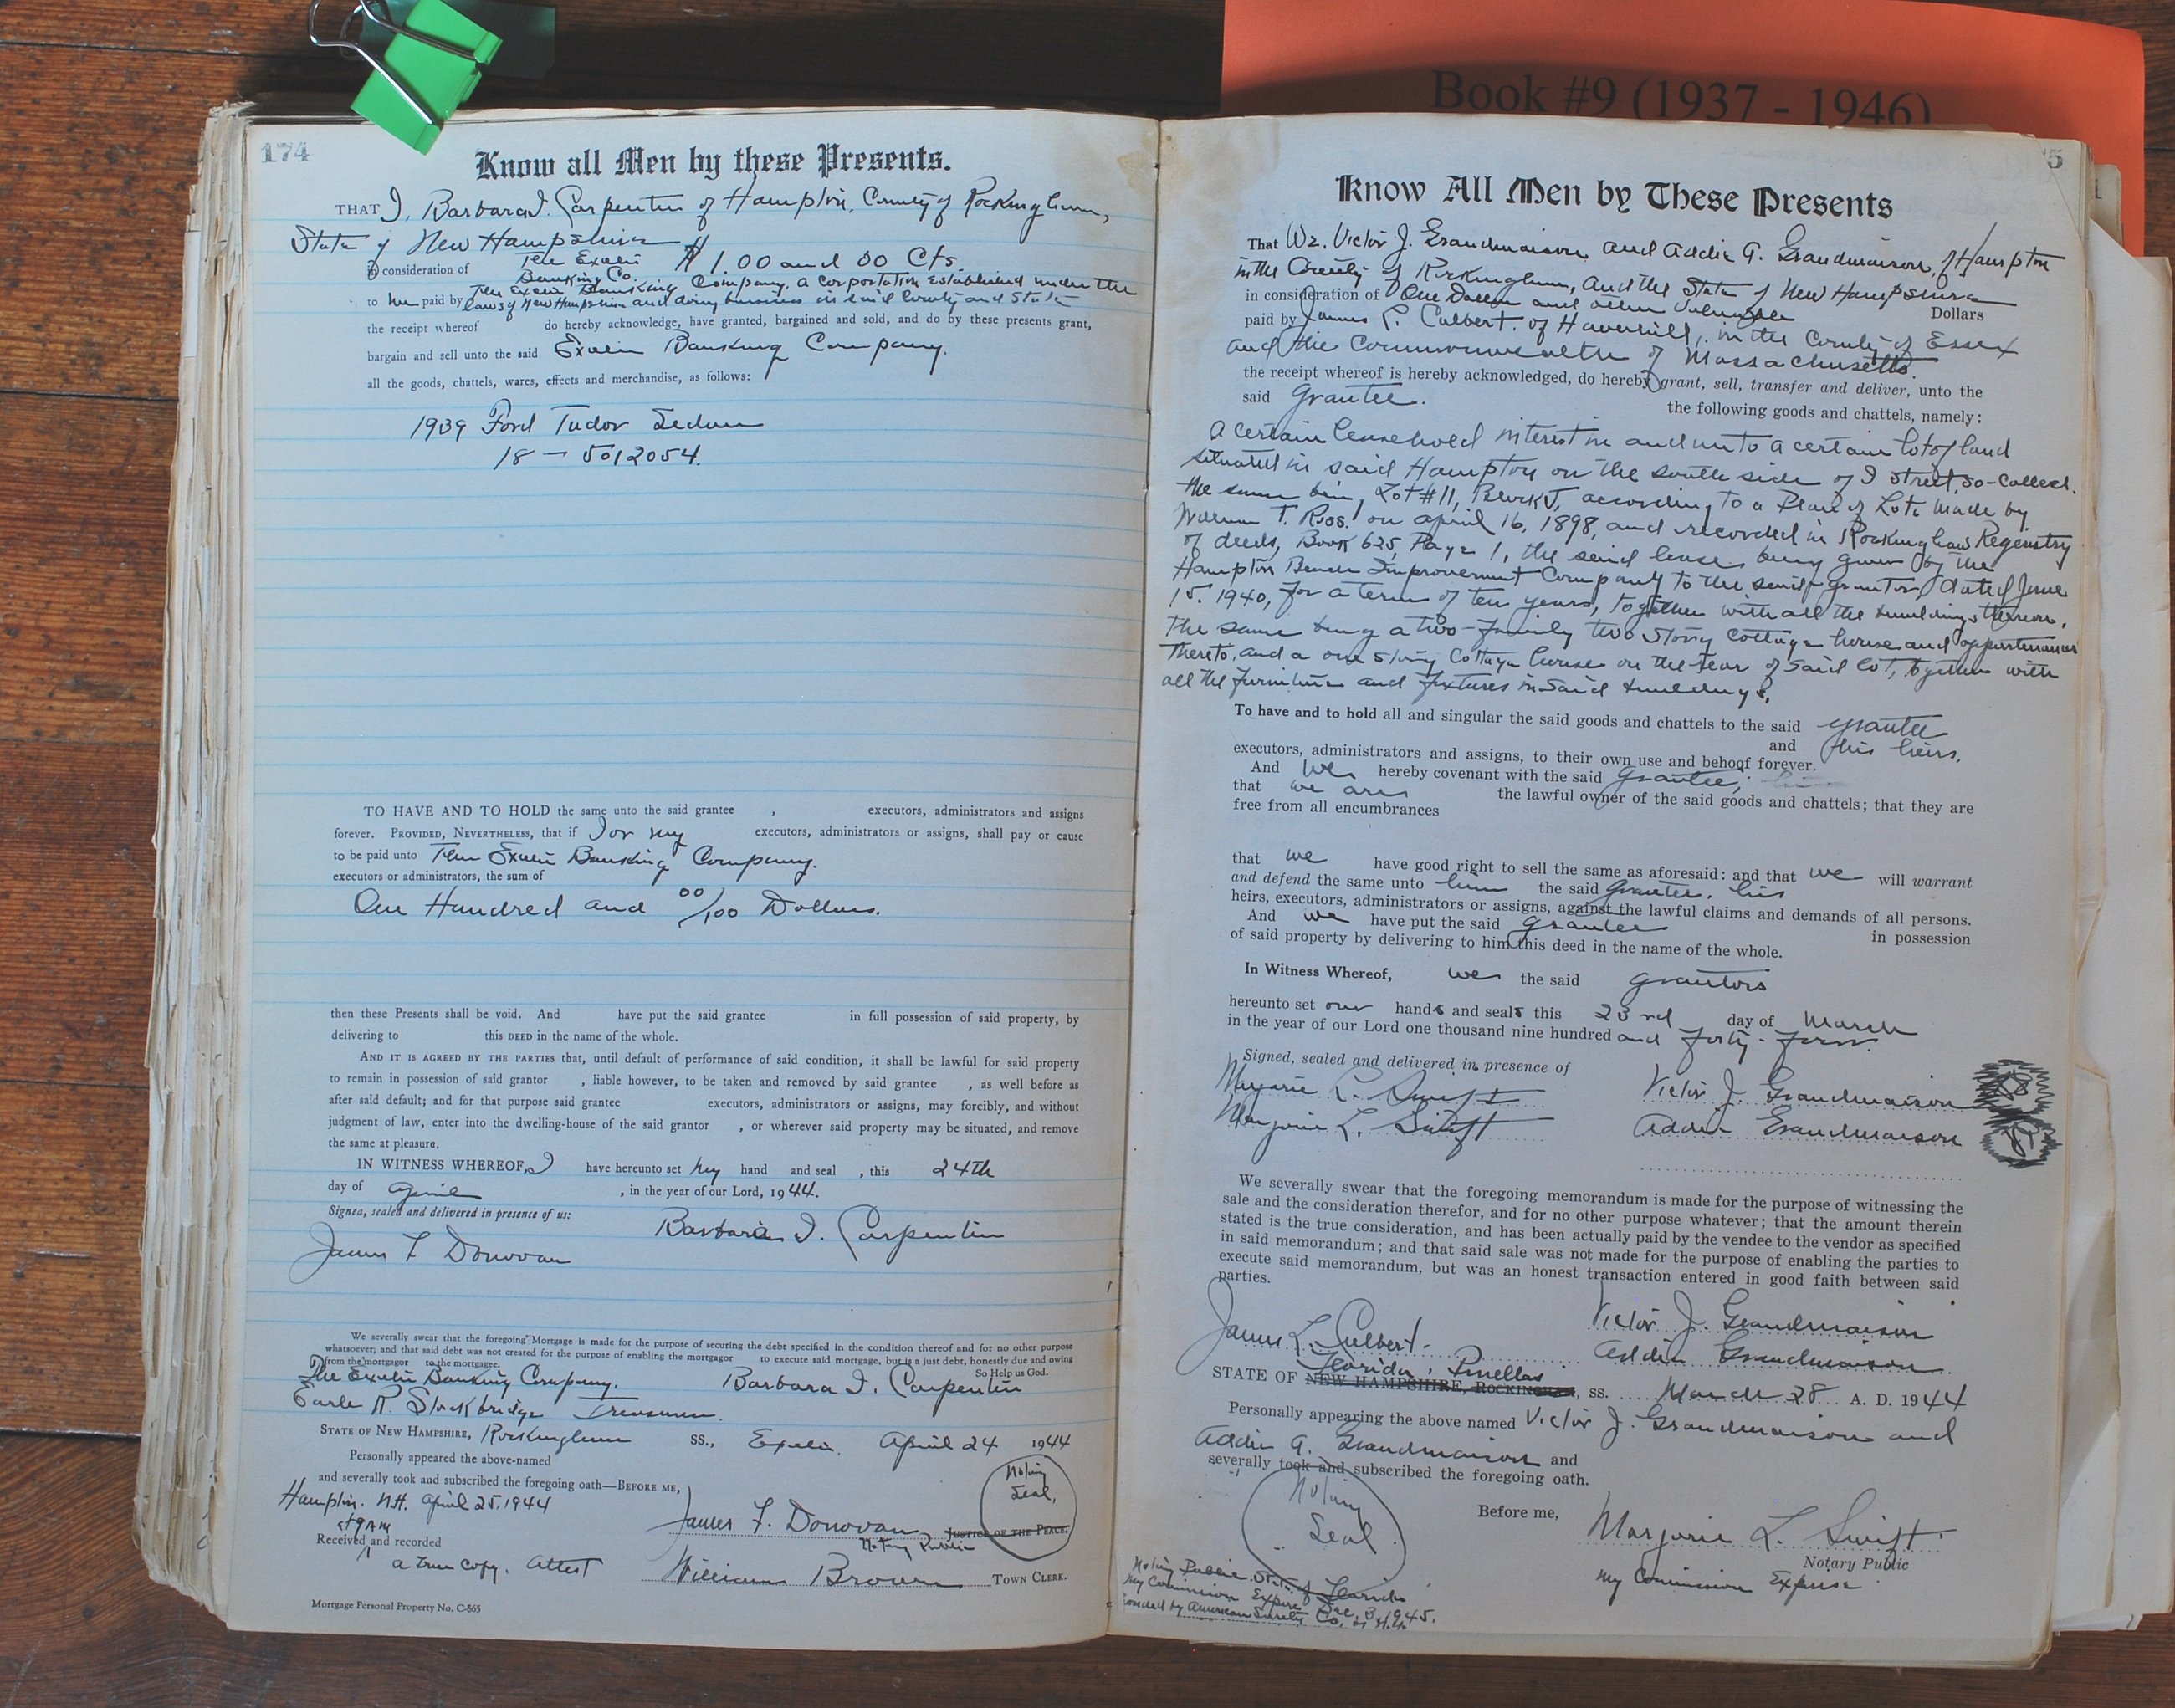 Book #9 (1937 - 1946)
174
Know all Men by these Presents.
THAT I, Barbara I. Carpenter of Hampton, County of Rockingham,
State of New Hampshire
in consideration of The Exeter Banking Co. $1.00 and 00 Cts
to me paid by The Exeter Banking Company, a corporation established under the
laws of New Hampshire and doing business in said County and State
the receipt whereof do hereby acknowledge, have granted, bargained and sold, and do by these presents grant,
bargain and sell unto the said Exeter Banking Company.
all the goods, chattels, wares, effects and merchandise, as follows:
1939 Ford Tudor Sedan
18 — 5012054.
TO HAVE AND TO HOLD the same unto the said grantee , executors, administrators and assigns
forever. PROVIDED, NEVERTHELESS, that if I or my executors, administrators or assigns, shall pay or cause
to be paid unto The Exeter Banking Company.
executors or administrators, the sum of
One Hundred and 00/100 Dollars.
then these Presents shall be void. And have put the said grantee in full possession of said property, by
delivering to this DEED in the name of the whole.
AND IT IS AGREED BY THE PARTIES that, until default of performance of said condition, it shall be lawful for said property
to remain in possession of said grantor , liable however, to be taken and removed by said grantee , as well before as
after said default; and for that purpose said grantee executors, administrators or assigns, may forcibly, and without
judgment of law, enter into the dwelling-house of the said grantor , or wherever said property may be situated, and remove
the same at pleasure.
IN WITNESS WHEREOF, I have hereunto set my hand and seal , this 24th
day of April , in the year of our Lord, 1944.
Signed, sealed and delivered in presence of us:
Barbara I. Carpenter
James F Donovan
We severally swear that the foregoing Mortgage is made for the purpose of securing the debt specified in the condition thereof and for no other purpose
whatsoever; and that said debt was not created for the purpose of enabling the mortgagor to execute said mortgage, but is a just debt, honestly due and owing
from the mortgagor to the mortgagee. So Help us God.
The Exeter Banking Company. Barbara I. Carpenter
Earle R. Stockbridge Treasurer.
STATE OF NEW HAMPSHIRE, Rockingham SS., Exeter. April 24 1944
Personally appeared the above-named
and severally took and subscribed the foregoing oath—BEFORE ME,
Notary Seal,
Hampton. N.H. April 25, 1944
at 9 AM
James F. Donovan, JUSTICE OF THE PEACE.
Notary Public
Received and recorded
a true copy. Attest William Brown TOWN CLERK.
Mortgage Personal Property No. C-865
5
Know All Men by These Presents
That We, Victor J. Grandmaison and Addie A. Grandmaison, of Hampton
in the County of Rockingham, and the State of New Hampshire
in consideration of One Dollar and other valuable Dollars
paid by James L. Culbert. of Haverhill, in the County of Essex
and the Commonwealth of Massachusetts.
the receipt whereof is hereby acknowledged, do hereby grant, sell, transfer and deliver, unto the
said Grantee. the following goods and chattels, namely:
A certain leasehold interest in and unto a certain lot of land
situated in said Hampton on the south side of I Street, so-called.
the same being Lot #11, Block J, according to a Plan of Lots made by
William T. Ross. on April 16, 1898, and recorded in Rockingham Regestry
of deeds, Book 625, Page 1, the said lease being given by the
Hampton Beach Improvement Company to the said grantor, dated June
15. 1940, for a term of ten years, together with all the buildings thereon,
the same being a two-family two story cottage house and appurtenances
thereto, and a one story cottage house on the rear of said lot, together with
all the furniture and fixtures in said buildings.
To have and to hold all and singular the said goods and chattels to the said grantee
and his heirs.
executors, administrators and assigns, to their own use and behoof forever.
And we hereby covenant with the said Grantee,
that we are the lawful owner of the said goods and chattels; that they are
free from all encumbrances
that we have good right to sell the same as aforesaid: and that we will warrant
and defend the same unto him the said Grantee. his
heirs, executors, administrators or assigns, against the lawful claims and demands of all persons.
And we have put the said grantee in possession
of said property by delivering to him this deed in the name of the whole.
In Witness Whereof, we the said grantors
hereunto set our hands and seals this 23rd day of March
in the year of our Lord one thousand nine hundred and forty-four.
Signed, sealed and delivered in presence of
Marjorie L. Swift Victor J. Grandmaison
Marjorie L. Swift Addie Grandmaison
We severally swear that the foregoing memorandum is made for the purpose of witnessing the
sale and the consideration therefor, and for no other purpose whatever; that the amount therein
stated is the true consideration, and has been actually paid by the vendee to the vendor as specified
in said memorandum; and that said sale was not made for the purpose of enabling the parties to
execute said memorandum, but was an honest transaction entered in good faith between said
parties.
James L. Culbert. Victor J. Grandmaison
Addie Grandmaison
Florida, Pinellas
STATE OF NEW HAMPSHIRE, ROCKINGHAM, ss. March 28 A. D. 1944
Personally appearing the above named Victor J. Grandmaison and
Addie A. Grandmaison and
severally took and subscribed the foregoing oath.
Notary Seal
Before me, Marjorie L. Swift
Notary Public
My Commission Expires
Notary Public State of Florida
My Commission Expires Dec. 3, 1945.
Bonded by American Surety Co. of N.Y.